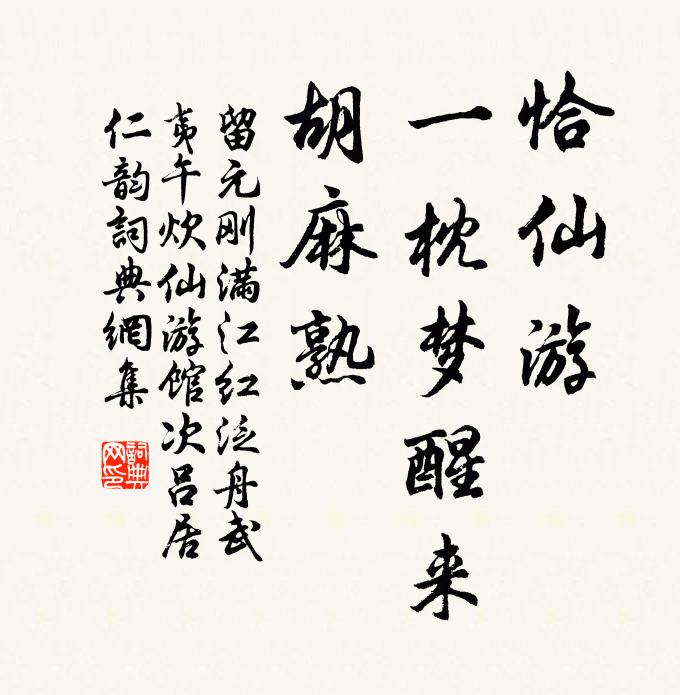 恰仙游
一枕梦醒来
胡麻熟
留元刚满江红泛舟武
夷午炊仙游馆次吕居
仁韵詞典網集
詞典
网印